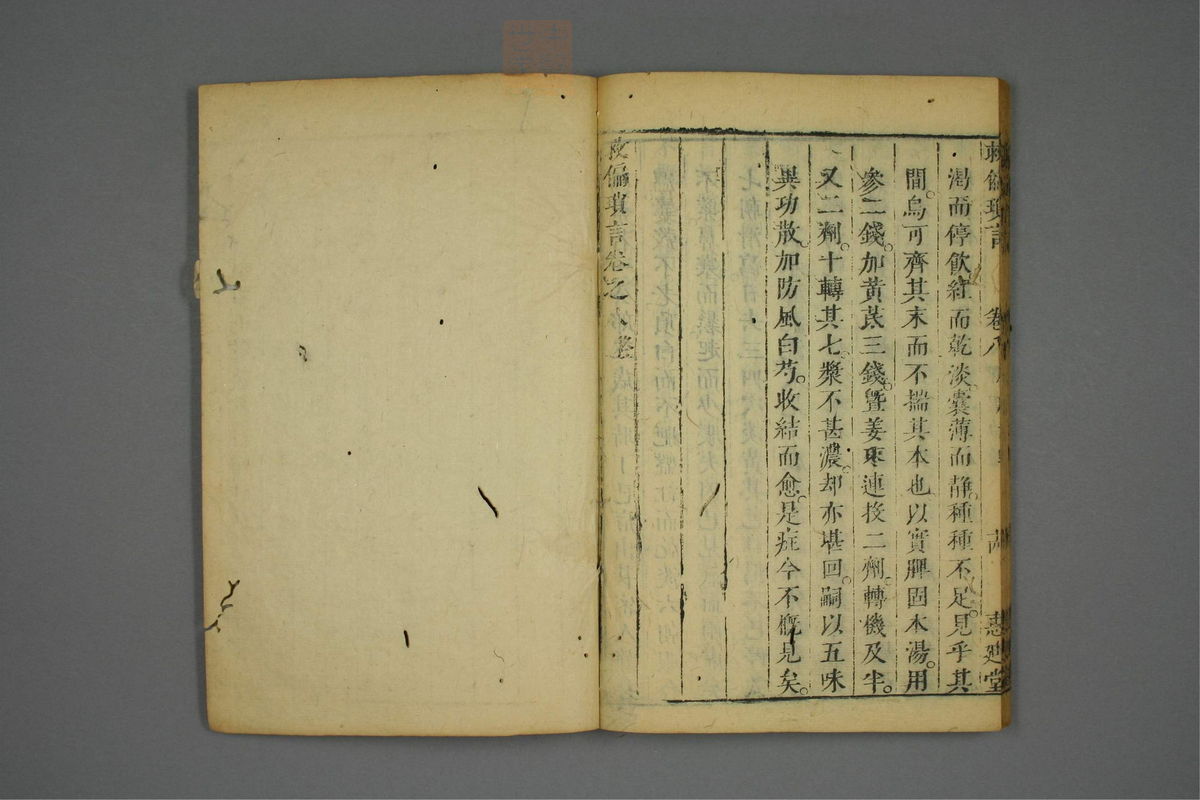 救偏瑣言 卷八 慧迪堂
渴而停飲紅而乾淡囊薄而靜種種不足見乎其
間烏可齊其末而不揣其本也以實脾固本湯用
參二錢加黃芪三錢暨姜棗連投二劑轉機及半
又二劑十轉其七漿不甚濃却亦堪回嗣以五味
異功散加防風白芍收結而愈是症今不概見矣
救偏瑣言卷之八終